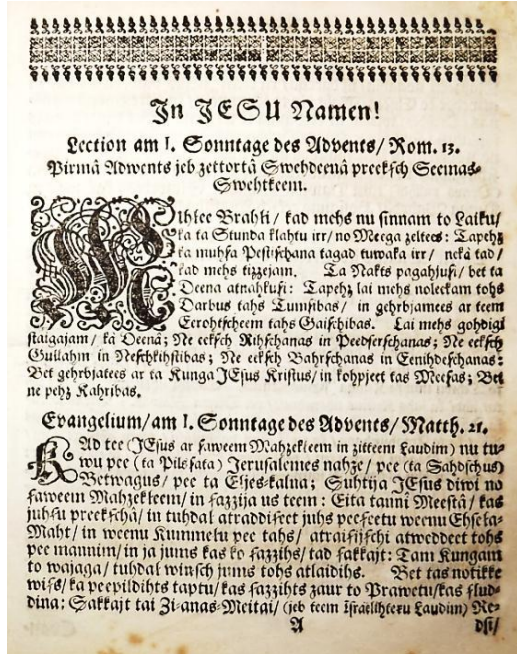 In JESU Namen!
Lection am I. Sonntage des Advents/ Rom. 13.
Pirmâ Adwents jeb zettortâ Swehdeenâ preekſch Seemas-
Swehtkeem.
MIhlee Brahli/ kad mehs nu ſinnam to Laiku/
ka ta Stunda klahtu irr/ no Meega zeltees: Tapehz
ka muhſa Peſtiſchana tagad tuwaka irr/ nekâ tad/
kad mehs tizzejam. Ta Nakts pagahjuſi/ bet ta
Deena atnahkuſi: Tapehz lai mehs noleekam tohs
Darbus tahs Tumſibas/ in gehrbjamees ar teem
Eerohtſcheem tahs Gaiſchibas. Lai mehs gohdigi
ſtaigajam/ kâ Deenâ; Ne eekſch Rihſchanas in Peedſerſchanas; Ne eekſch
Gullahm in Neſchkihſtibas; Ne eekſch Bahrſchanas in Eenihdeſchanas:
Bet gehrbjatees ar ta Kunga JEſus Kriſtus/ in kohpjeet tas Meeſas; Bet
ne pehz Kahribas.
Evangelium/ am I. Sonntage des Advents/ Matth. 21.
KAd tee (JEſus ar ſaweem Mahzekleem in zitteem Laudim) nu tu-
wu pee (ta Pilsſata) Jeruſalemes nahze/ pee (ta Sahdſchus)
Betwagus/ pee ta Eljes-kalna; Suhtija JEſus diwi no
ſaweem Mahzekleem/ in ſazzija us teem: Eita tannî Meeſtâ/ kas
juhſu preekſchâ/ in tuhdal atraddiſeet juhs peeſeetu weenu Ehſeļa-
Maht/ in weenu Kummelu pee tahs/ atraiſijſchi atweddeet tohs
pee mannim/ in ja jums kas ko ſazzihs/ tad ſakkajt: Tam Kungam
to wajaga/ tuhdal winſch jums tohs atlaidihs. Bet tas notikke
wiſs/ ka peepildihts taptu/ kas ſazzihts zaur to Prawetu/ kas ſlud-
dina: Sakkajt tai Zi-anas-Meitai/ (jeb teem Iſraëlihteru Laudim) Re-
A dſi/